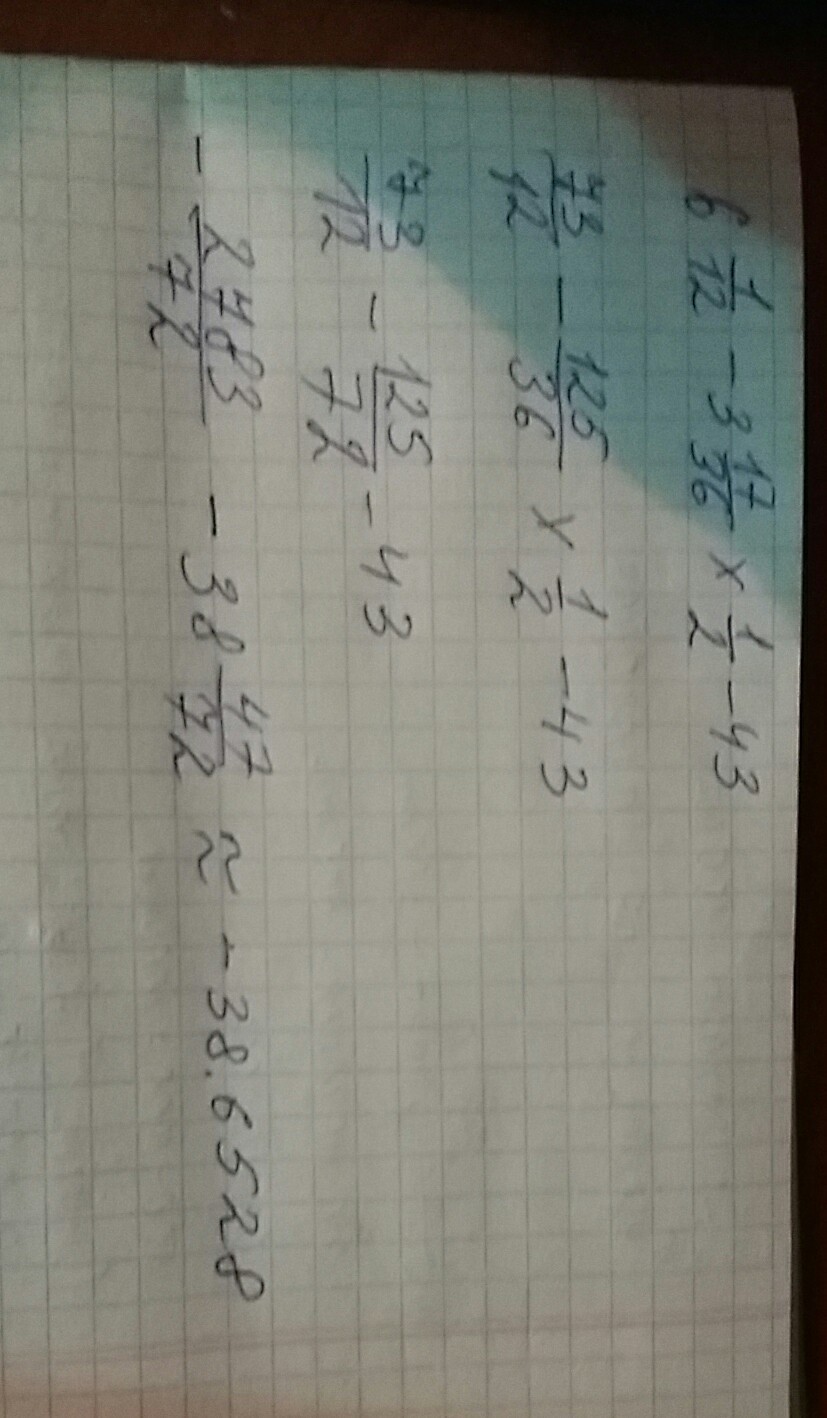 6 1/12 - 3 17/36 × 1/2 - 43
73/12 - 125/36 × 1/2 - 43
73/12 - 125/72 - 43
- 2783/72 - 38 47/72 ≈ -38.6528